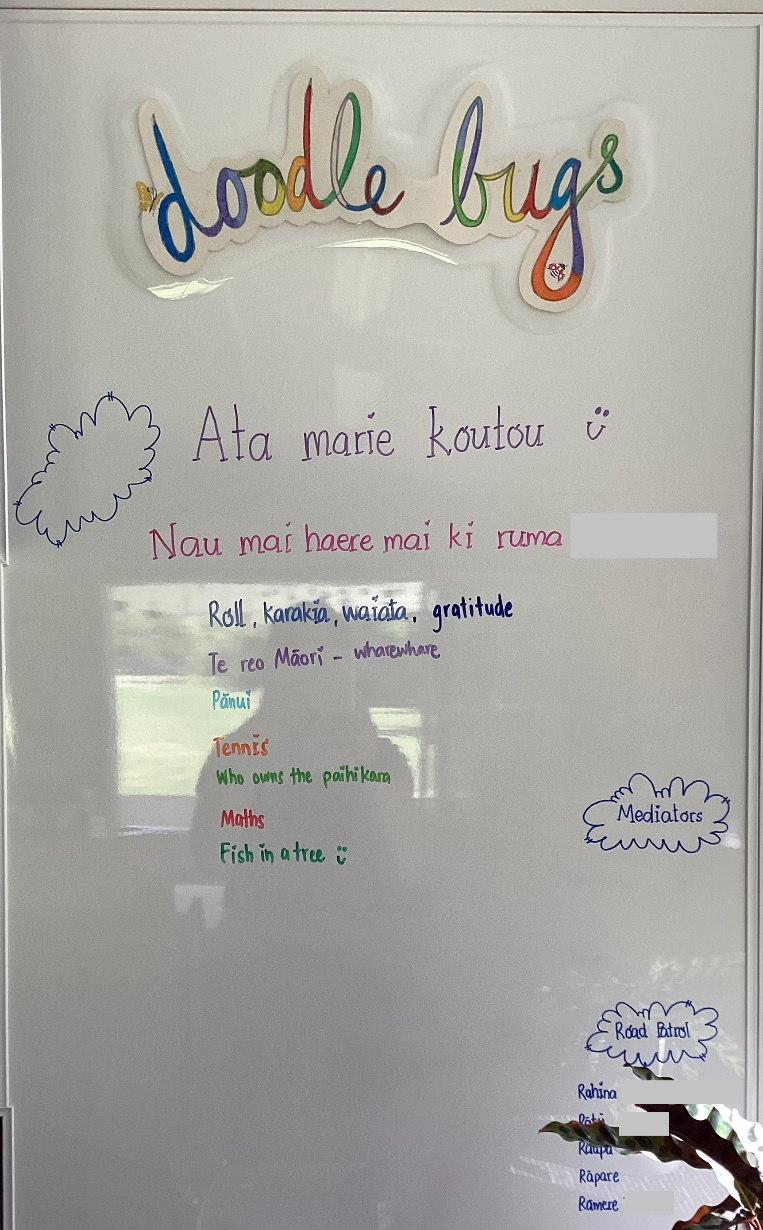 doodle bugs
Ata marie koutou
Nau mai haere mai ki ruma
Roll, karakia, waiata, gratitude
Te reo Māori - wharewhare
Pānui
Tennis
Who owns the paihikara
Maths
Fish in a tree
Mediators
Road Patrol
Rahina
Rātū
Raapa
Rāpare
Rāmere